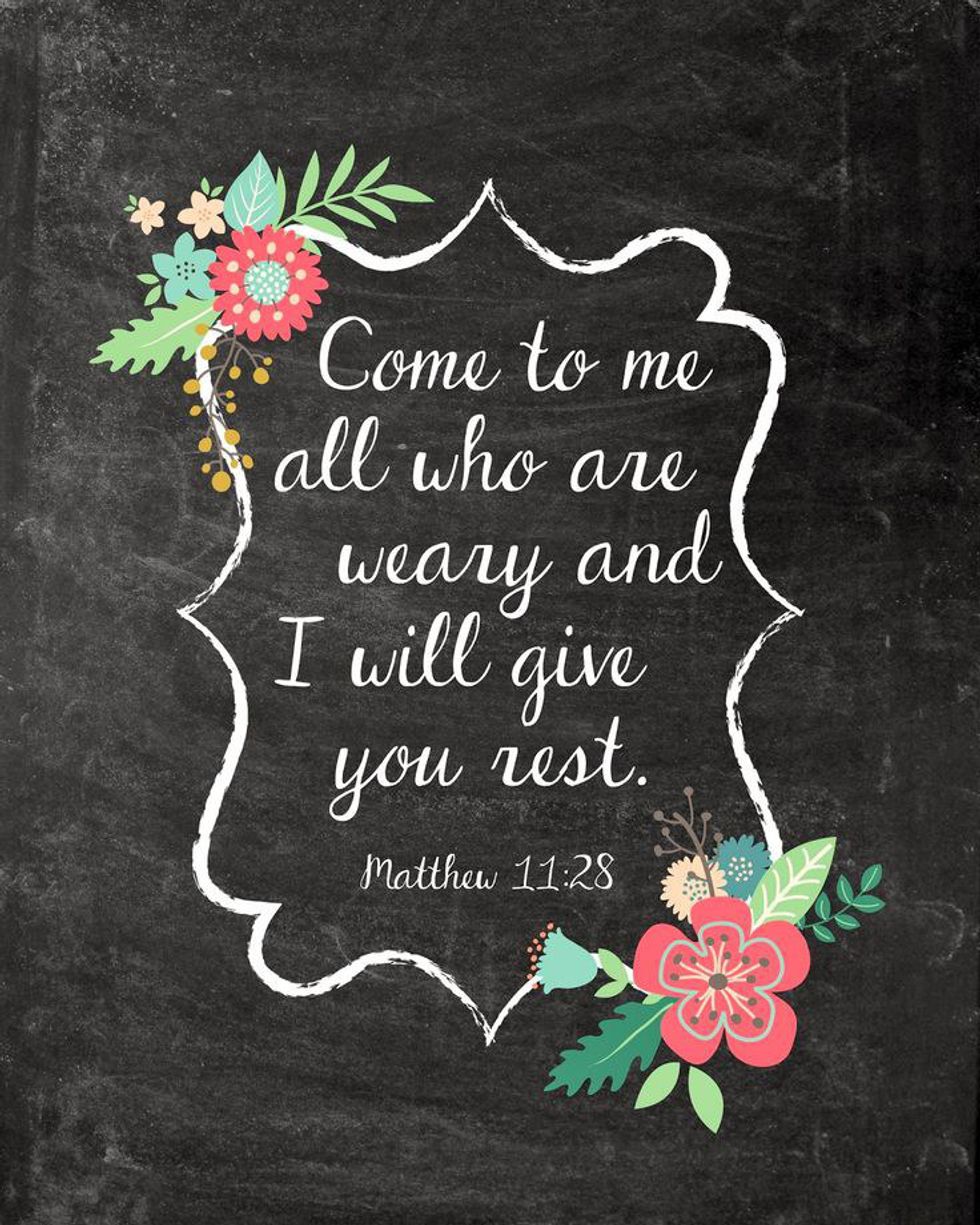 Come to me
all who are
weary and
I will give
you rest.
Matthew 11:28